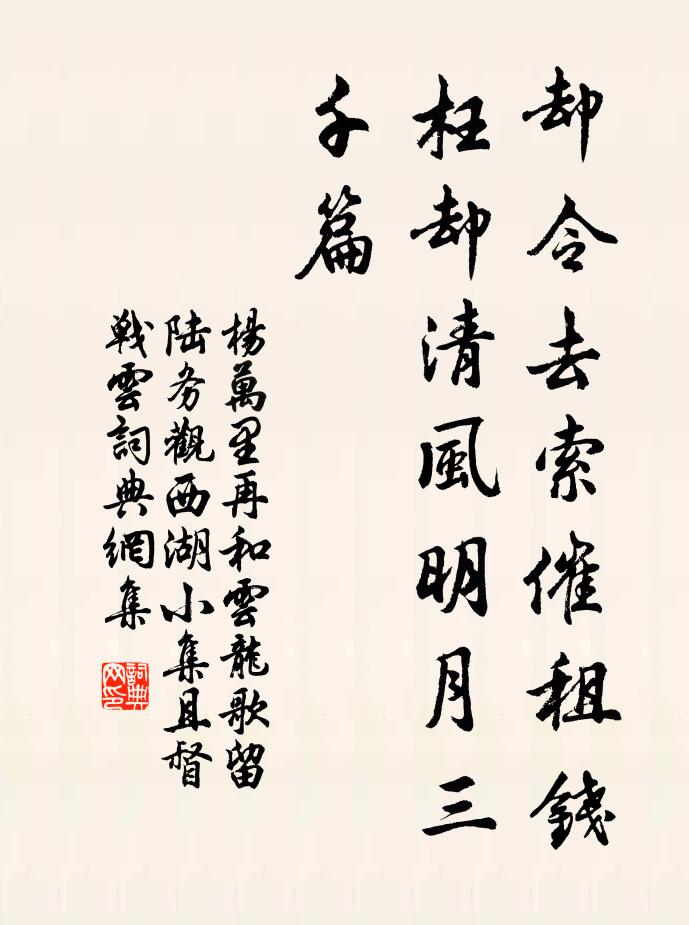 却令去索催租錢
枉却清風明月三
千篇
楊萬里再和雲龍歌留
陆务觀西湖小集且督
戰雲詞典網集
詞典網印